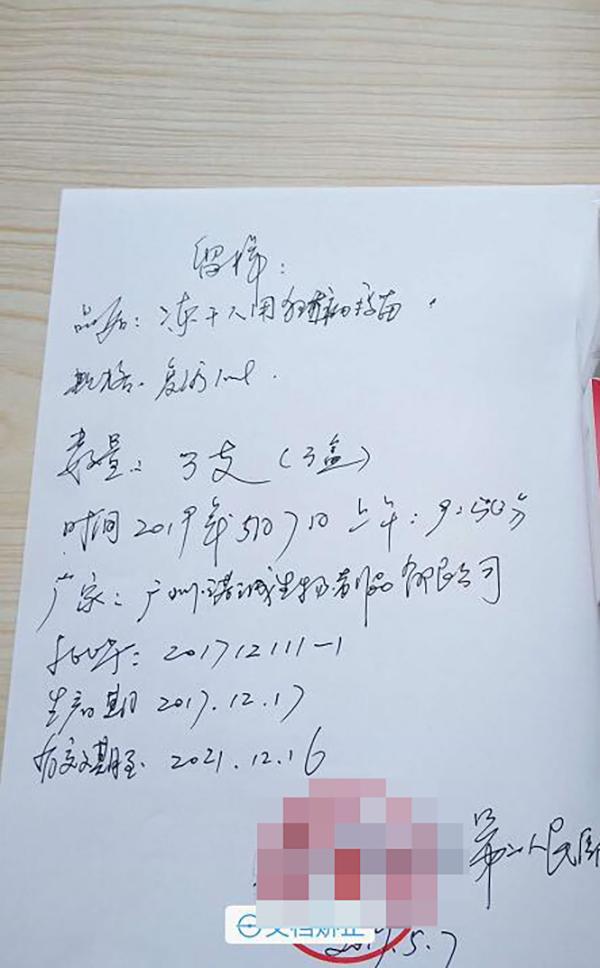 留样:
品名: 冻干人用狂犬病疫苗
规格: 复溶1ml.
数量: 3支(3盒)
时间 2019年5月7日 上午: 9:50分
厂家: 广州诺诚生物制品有限公司
批号: 201712111-1
生产日期 2017.12.17
有效期至 2021.12.16
第二人民医
文档矫正
5.7